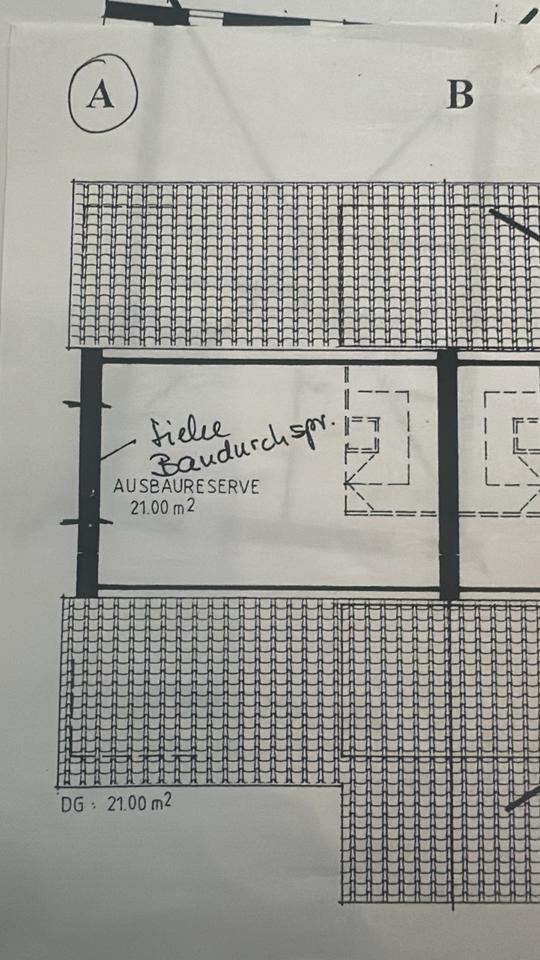 A B
Siehe
Baudurchspr.
AUSBAURESERVE
21.00 m²
DG : 21.00 m²